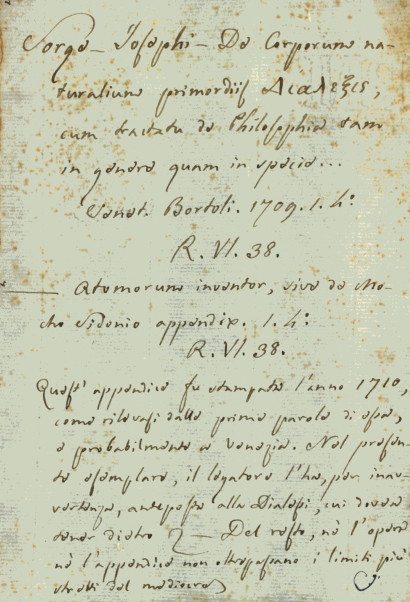 Sorgo – Josephi – De Corporum na-
turalium primordiis Διαλέξις,
cum tractatu de Philosophia tam
in genere quam in specie...
Venet. Bortoli. 1709. 1. 4.º
R. VI. 38.
— Atomorum inventor, sive de Mo-
cho Sidonio appendix. 1. 4.º
R. VI. 38.
Quest' appendice fu stampata l'anno 1710,
come rilevasi dalle prime parole di essa,
e probabilmente a Venezia. Nel presen-
te esemplare, il legatore l'ha, per inav-
vertenza, anteposta alla Dialessi, cui dovea
tener dietro — Del resto, nè l'opera
nè l'appendice non oltrepassano i limiti più
stretti del mediocre